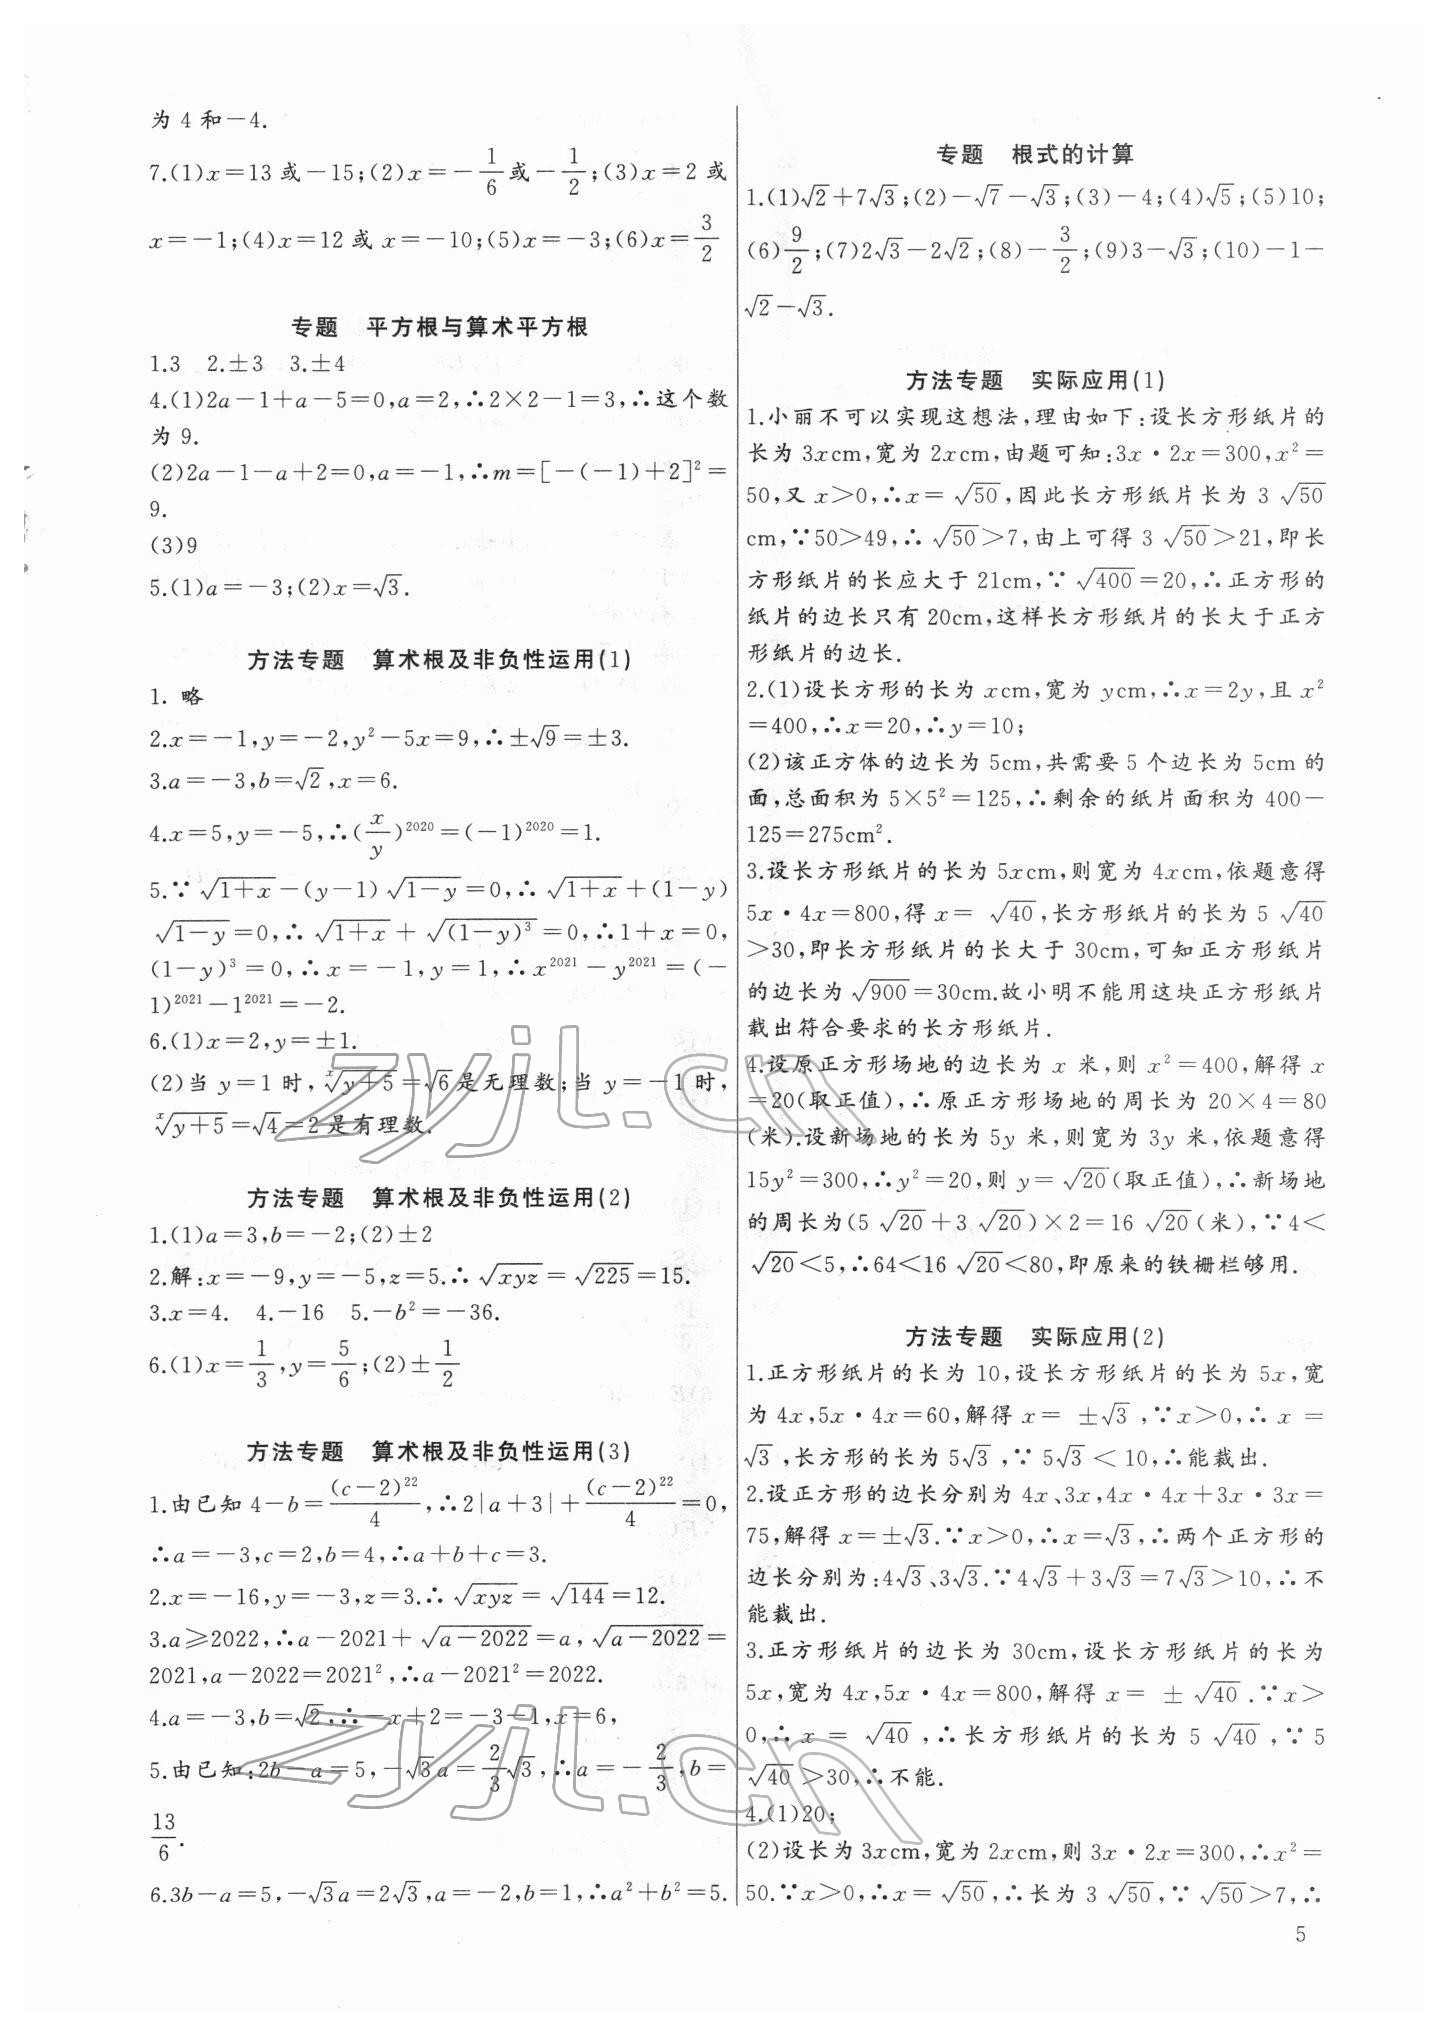 为 4 和－4.
7.(1)x＝13 或－15;(2)x＝－1/6或－1/2;(3)x＝2 或
x＝－1;(4)x＝12 或 x＝－10;(5)x＝－3;(6)x＝3/2
专题 平方根与算术平方根
1.3 2.±3 3.±4
4.(1)2a－1＋a－5＝0,a＝2,∴2×2－1＝3,∴这个数
为 9.
(2)2a－1－a＋2＝0,a＝－1,∴m＝[－(－1)＋2]²＝
9.
(3)9
5.(1)a＝－3;(2)x＝√3.
方法专题 算术根及非负性运用(1)
1. 略
2.x＝－1,y＝－2,y²－5x＝9,∴±√9＝±3.
3.a＝－3,b＝√2,x＝6.
4.x＝5,y＝－5,∴(x/y)²⁰²⁰＝(－1)²⁰²⁰＝1.
5.∵√(1＋x)－(y－1)√(1－y)＝0,∴√(1＋x)＋(1－y)
√(1－y)＝0,∴√(1＋x)＋√((1－y)³)＝0,∴1＋x＝0,
(1－y)³＝0,∴x＝－1,y＝1,∴x²⁰²¹－y²⁰²¹＝(－
1)²⁰²¹－1²⁰²¹＝－2.
6.(1)x＝2,y＝±1.
(2)当 y＝1 时,ˣ√(y＋5)＝√6是无理数;当 y＝－1 时,
ˣ√(y＋5)＝√4＝2是有理数.
方法专题 算术根及非负性运用(2)
1.(1)a＝3,b＝－2;(2)±2
2.解:x＝－9,y＝－5,z＝5.∴√(xyz)＝√225＝15.
3.x＝4. 4.－16 5.－b²＝－36.
6.(1)x＝1/3,y＝5/6;(2)±1/2
方法专题 算术根及非负性运用(3)
1.由已知 4－b＝(c－2)²²/4,∴2|a＋3|＋(c－2)²²/4＝0,
∴a＝－3,c＝2,b＝4,∴a＋b＋c＝3.
2.x＝－16,y＝－3,z＝3.∴√(xyz)＝√144＝12.
3.a≥2022,∴a－2021＋√(a－2022)＝a,√(a－2022)＝
2021,a－2022＝2021²,∴a－2021²＝2022.
4.a＝－3,b＝√2,∴－x＋2＝－3－1,x＝6,
5.由已知:2b－a＝5,－√3a＝2/3√3,∴a＝－2/3,b＝
13/6.
6.3b－a＝5,－√3a＝2√3,a＝－2,b＝1,∴a²＋b²＝5.
专题 根式的计算
1.(1)√2＋7√3;(2)－√7－√3;(3)－4;(4)√5;(5)10;
(6)9/2;(7)2√3－2√2;(8)－3/2;(9)3－√3;(10)－1－
√2－√3.
方法专题 实际应用(1)
1.小丽不可以实现这想法,理由如下:设长方形纸片的
长为 3xcm,宽为 2xcm,由题可知:3x·2x＝300,x²＝
50,又 x＞0,∴x＝√50,因此长方形纸片长为 3√50
cm,∵50＞49,∴√50＞7,由上可得 3√50＞21,即长
方形纸片的长应大于 21cm,∵√400＝20,∴正方形的
纸片的边长只有 20cm,这样长方形纸片的长大于正方
形纸片的边长.
2.(1)设长方形的长为 xcm,宽为 ycm,∴x＝2y,且 x²
＝400,∴x＝20,∴y＝10;
(2)该正方体的边长为 5cm,共需要 5 个边长为 5cm 的
面,总面积为 5×5²＝125,∴剩余的纸片面积为 400－
125＝275cm².
3.设长方形纸片的长为 5xcm,则宽为 4xcm,依题意得
5x·4x＝800,得 x＝√40,长方形纸片的长为 5√40
＞30,即长方形纸片的长大于 30cm,可知正方形纸片
的边长为√900＝30cm.故小明不能用这块正方形纸片
裁出符合要求的长方形纸片.
4.设原正方形场地的边长为 x 米,则 x²＝400,解得 x
＝20(取正值),∴原正方形场地的周长为 20×4＝80
(米).设新场地的长为 5y 米,则宽为 3y 米,依题意得
15y²＝300,∴y²＝20,则 y＝√20(取正值),∴新场地
的周长为(5√20＋3√20)×2＝16√20(米),∵4＜
√20＜5,∴64＜16√20＜80,即原来的铁栅栏够用.
方法专题 实际应用(2)
1.正方形纸片的长为 10,设长方形纸片的长为 5x,宽
为 4x,5x·4x＝60,解得 x＝±√3,∵x＞0,∴x＝
√3,长方形的长为 5√3,∵5√3＜10,∴能裁出.
2.设正方形的边长分别为 4x、3x,4x·4x＋3x·3x＝
75,解得 x＝±√3.∵x＞0,∴x＝√3,∴两个正方形的
边长分别为:4√3、3√3.∵4√3＋3√3＝7√3＞10,∴不
能裁出.
3.正方形纸片的边长为 30cm,设长方形纸片的长为
5x,宽为 4x,5x·4x＝800,解得 x＝±√40.∵x＞
0,∴x＝√40,∴长方形纸片的长为 5√40,∵5
√40＞30,∴不能.
4.(1)20;
(2)设长为 3xcm,宽为 2xcm,则 3x·2x＝300,∴x²＝
50.∵x＞0,∴x＝√50,∴长为 3√50,∵√50＞7,∴
5
zyjl.cn
zyjl.cn